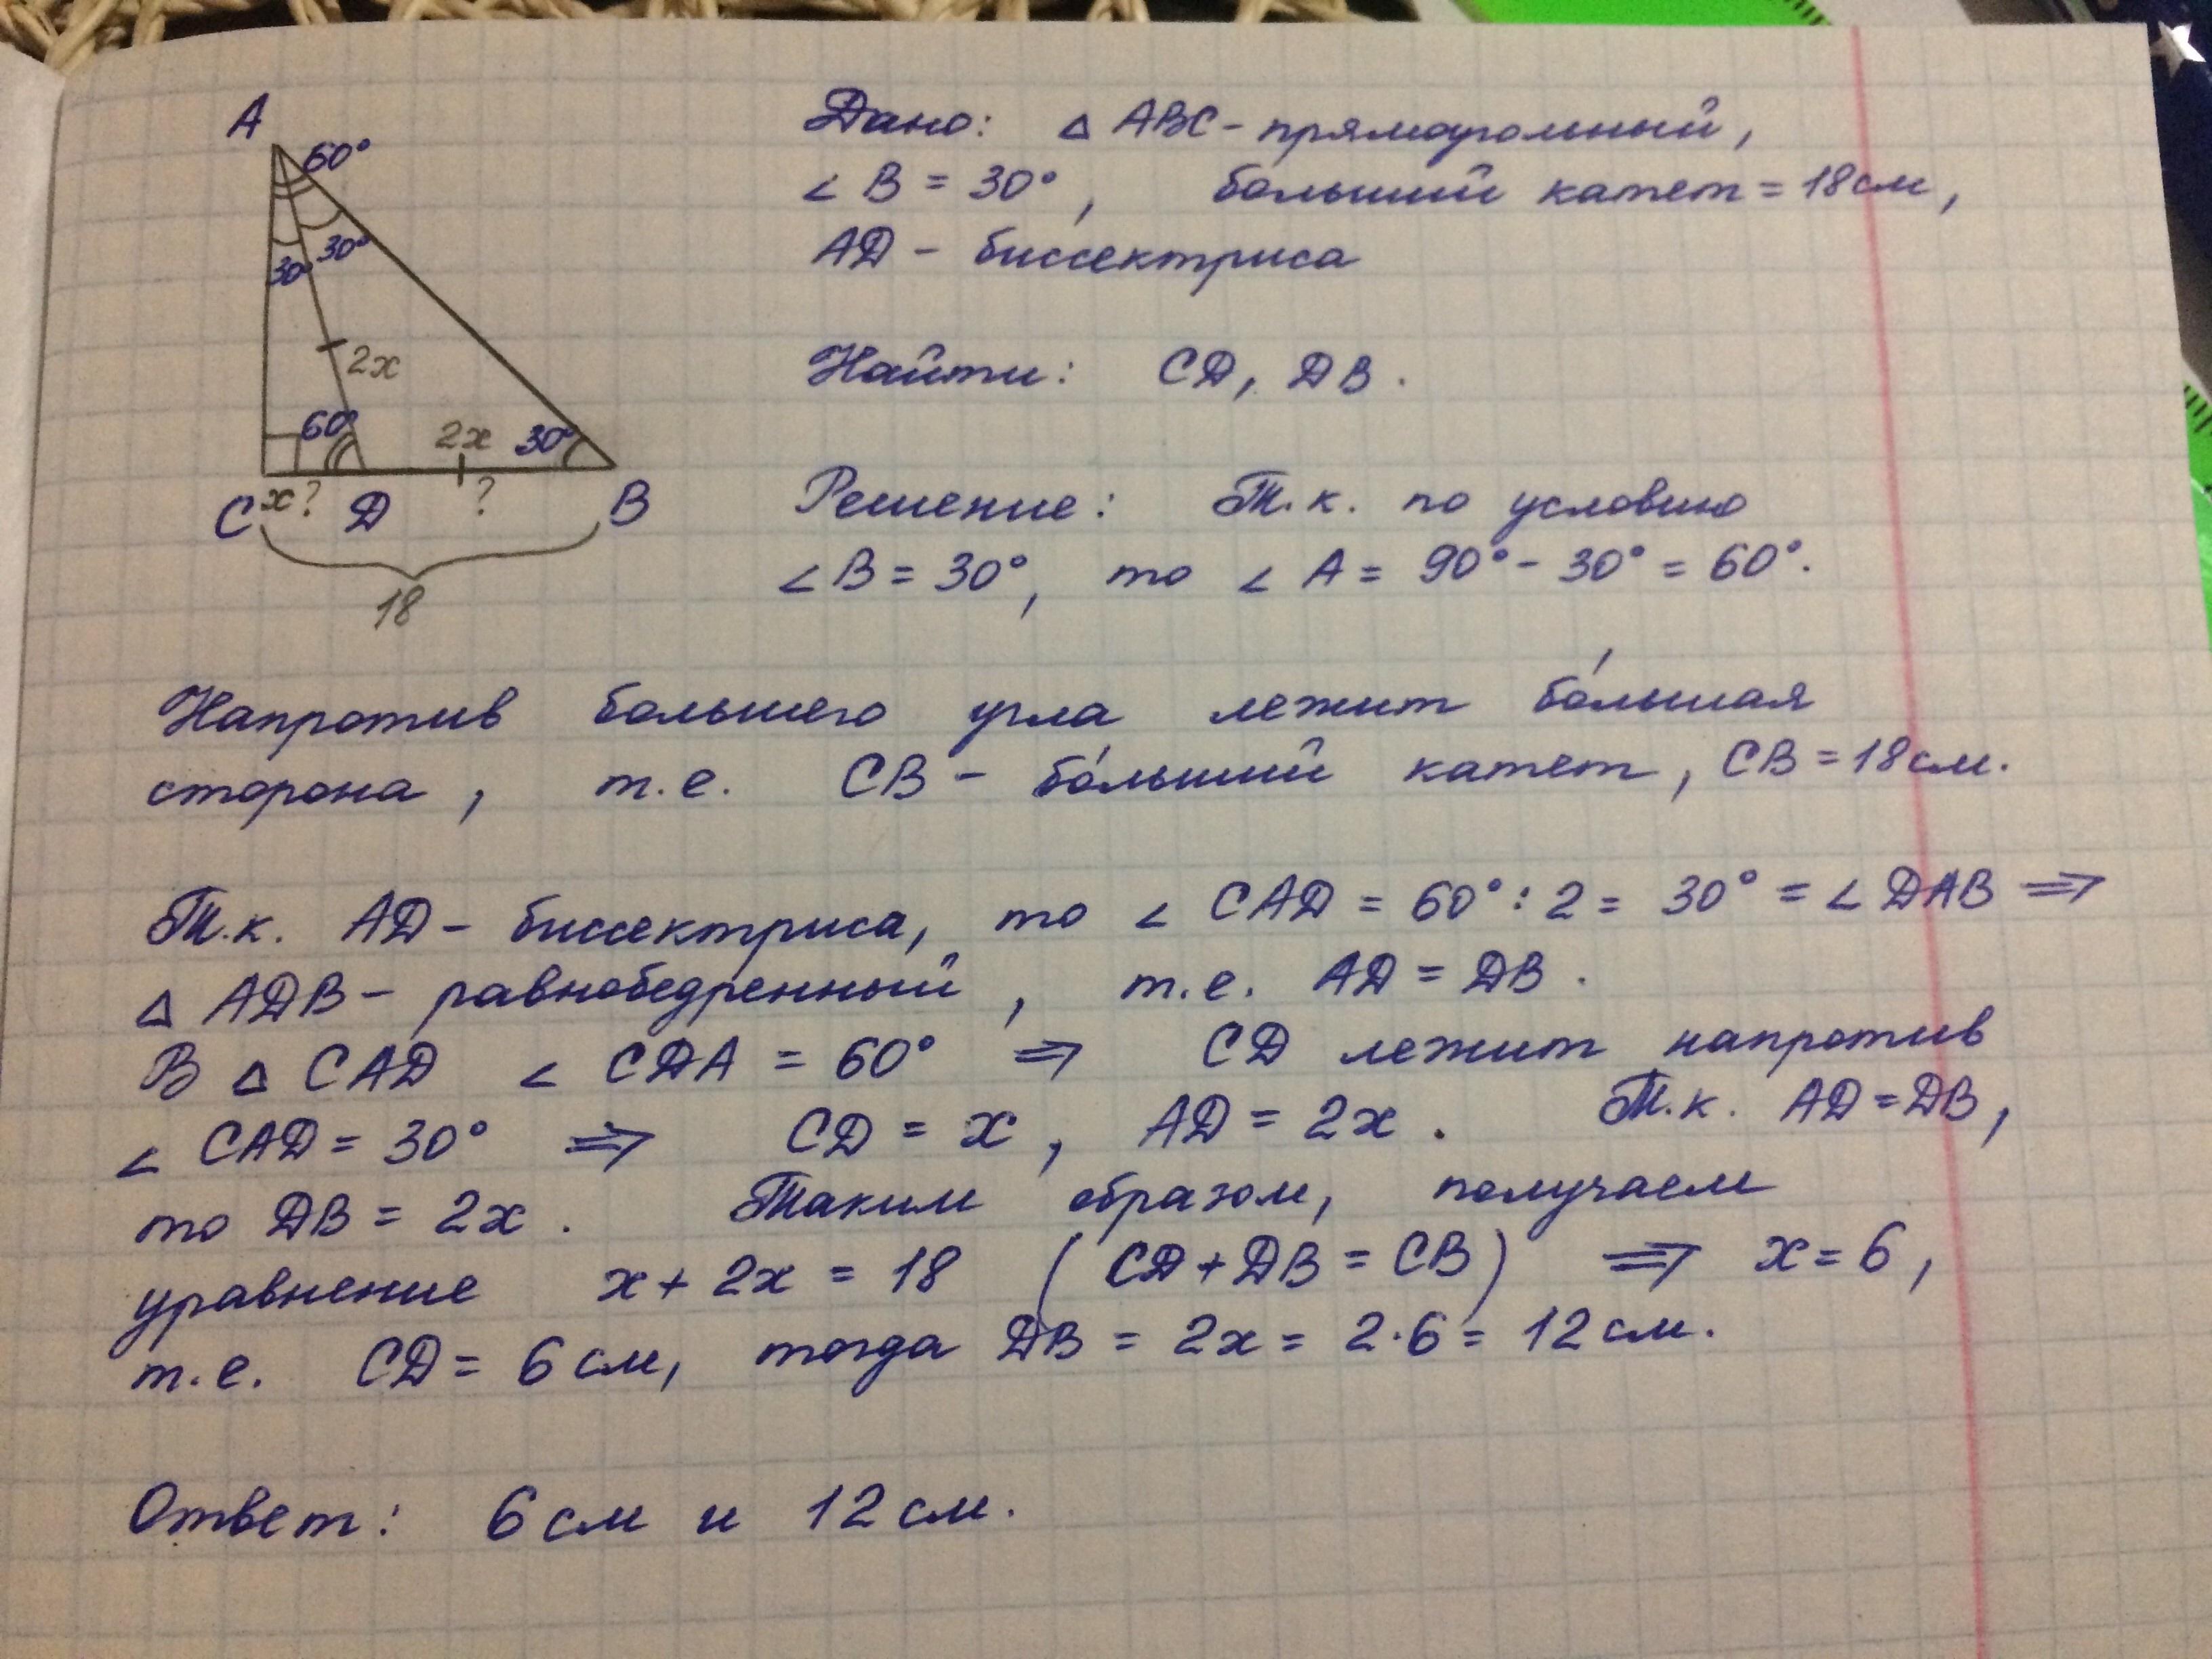 A
60°
30°
30°
2x
60°
2x
30°
C
x?
D
?
B
18
Дано: △ ABC - прямоугольный,
∠ B = 30°, больший катет = 18 см,
AD - биссектриса
Найти: CD, DB.
Решение: Т.к. по условию
∠ B = 30°, то ∠ A = 90° - 30° = 60°.
Напротив большего угла лежит бо́льшая
сторона, т.е. CB - бо́льший катет, CB = 18 см.
Т.к. AD - биссектриса, то ∠ CAD = 60° : 2 = 30° = ∠ DAB ⇒
△ ADB - равнобедренный, т.е. AD = DB.
В △ CAD ∠ CDA = 60° ⇒ CD лежит напротив
∠ CAD = 30° ⇒ CD = x, AD = 2x. Т.к. AD = DB,
то DB = 2x. Таким образом, получаем
уравнение x + 2x = 18 (CD + DB = CB) ⇒ x = 6,
т.е. CD = 6 см, тогда DB = 2x = 2·6 = 12 см.
Ответ: 6 см и 12 см.